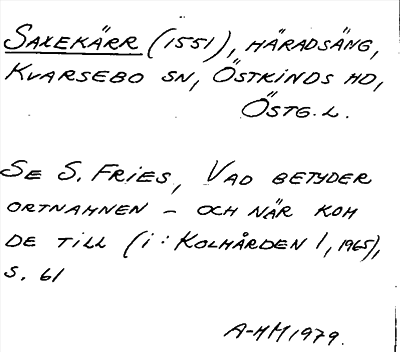 SAXEKÄRR (1551), HÄRADSÄNG,
KVARSEBO SN, ÖSTKINDS HD,
ÖSTG. L.
SE S. FRIES, VAD BETYDER
ORTNAMNEN – OCH NÄR KOM
DE TILL (i: KOLMÅRDEN 1, 1965),
S. 61
A-MM 1979.